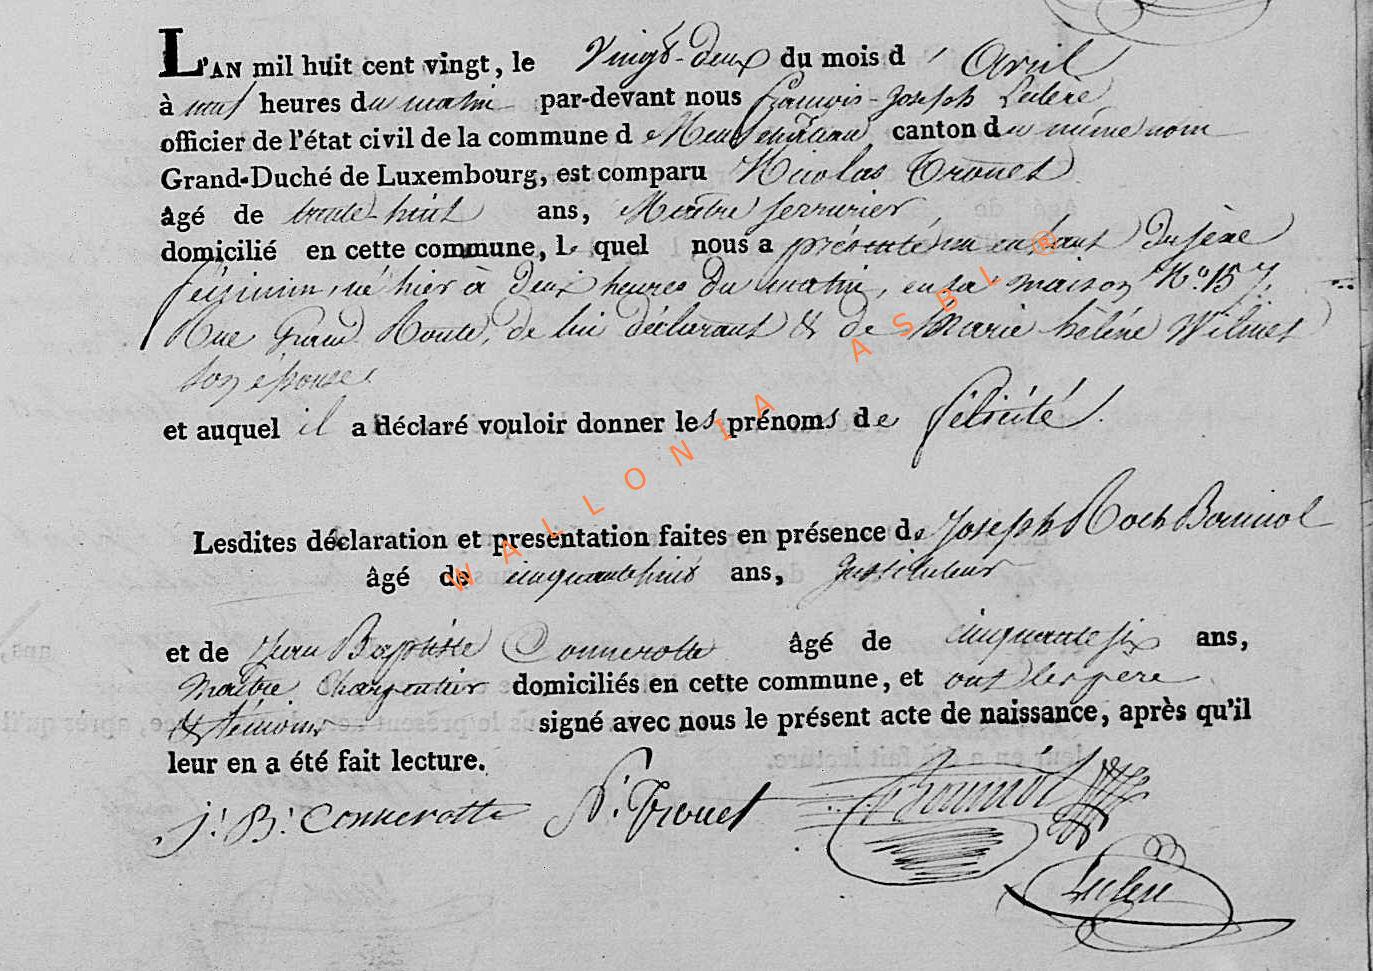 L'AN mil huit cent vingt, le Vingt-deux du mois d' Avril
à neuf heures du matin par-devant nous françois-Joseph Leclere
officier de l'état civil de la commune de Neufchateau canton du même nom
Grand-Duché de Luxembourg, est comparu Nicolas Trouet
âgé de trente-huit ans, Maitre serrurier,
domicilié en cette commune, lequel nous a présenté un enfant Du sexe
féminin, né hier à Deux heures Du matin, en sa maison N.o 157,
Rue Grand Route, de lui déclarant & de Marie hélène Wilmet
son épouse.
et auquel il a déclaré vouloir donner les prénoms de félicité.
Lesdites déclaration et presentation faites en présence de Joseph Roch Bauniol
âgé de cinquante huit ans, Instituteur
et de Jean Baptiste Connerotte âgé de cinquante six ans,
Maitre Charpentier domiciliés en cette commune, et ont les pere
& témoins signé avec nous le présent acte de naissance, après qu'il
leur en a été fait lecture.
J. B. Connerotte N. Trouet
WALLONIA ASBL ®